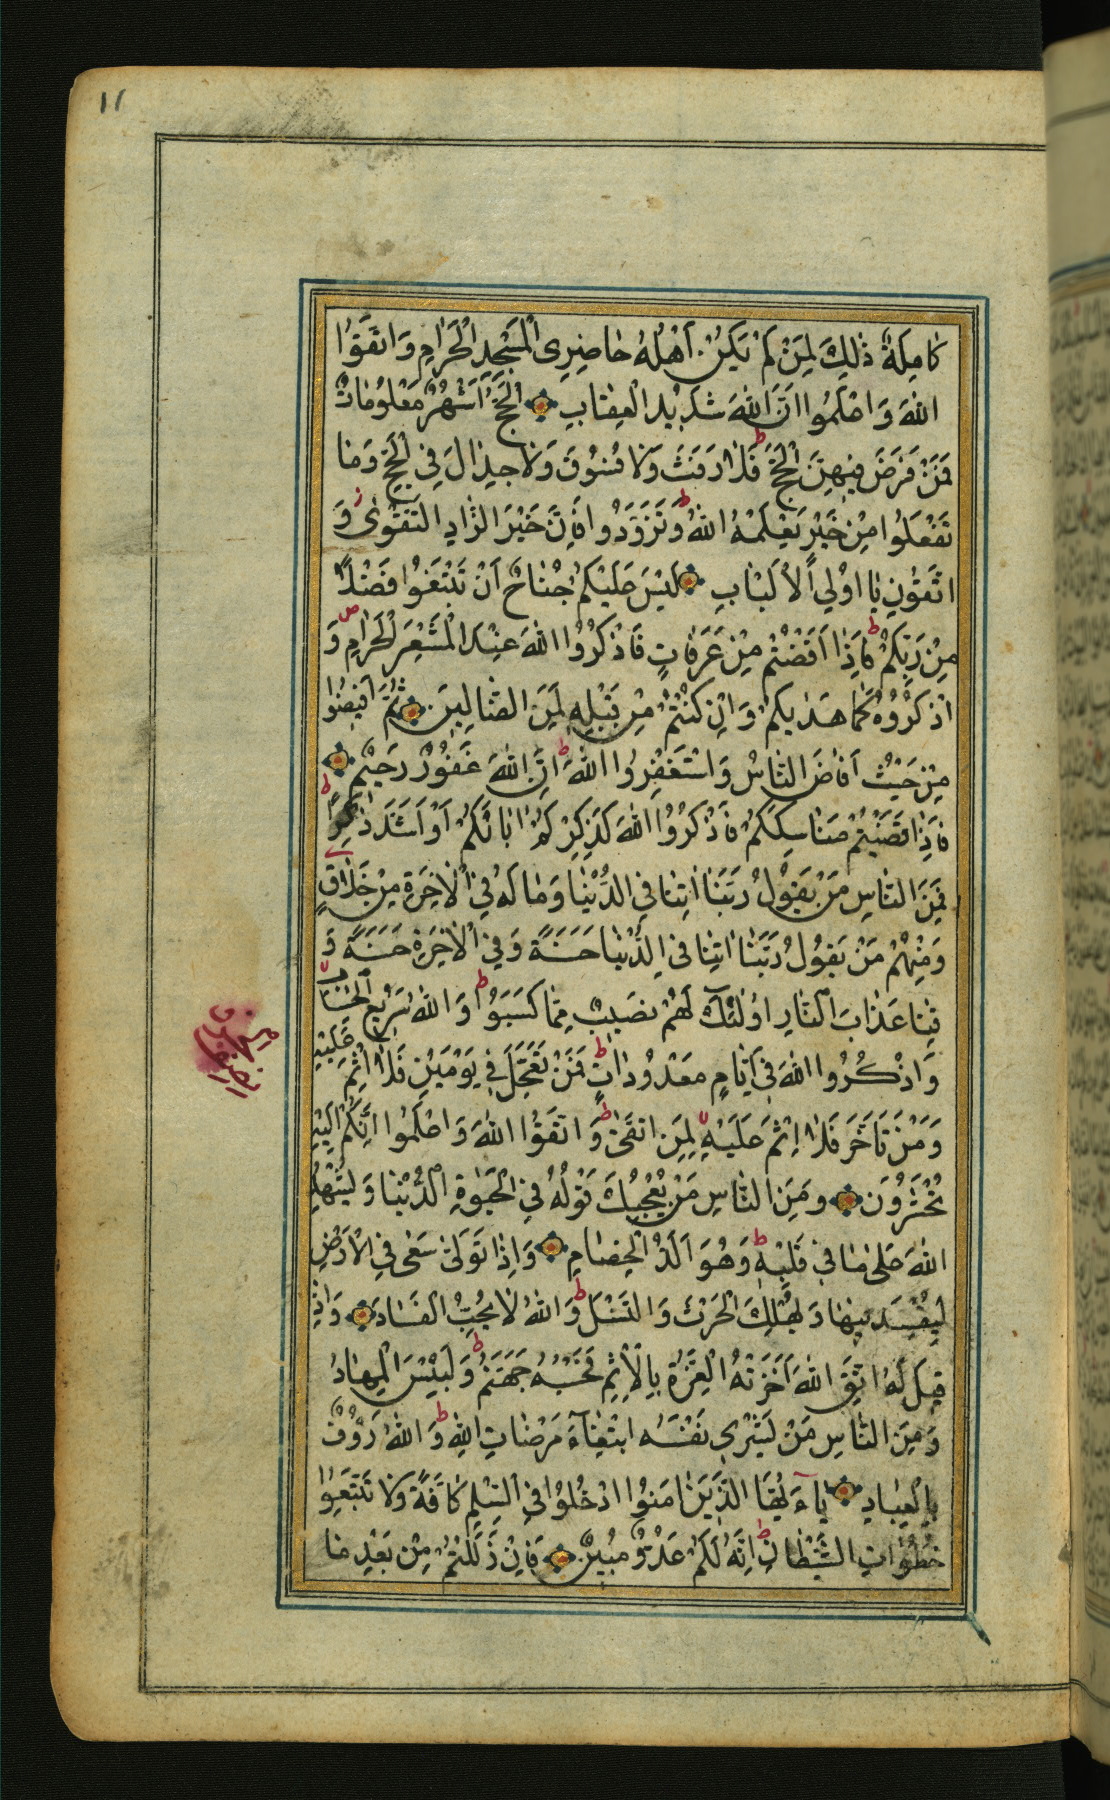 ١١
كَامِلَةٌ ذٰلِكَ لِمَنْ لَمْ يَكُنْ اَهْلُهُ حَاضِرِى الْمَسْجِدِ الْحَرَامِ وَاتَّقُوا
اللّٰهَ وَاعْلَمُوا اَنَّ اللّٰهَ شَدِيْدُ الْعِقَابِ الْحَجُّ اَشْهُرٌ مَعْلُومَاتٌ
فَمَنْ فَرَضَ فِيهِنَّ الْحَجَّ ط فَلَا رَفَثَ وَلَا فُسُوْقَ وَلَا جِدَالَ فِي الْحَجِّ وَمَا
تَفْعَلُوا مِنْ خَيْرٍ يَعْلَمْهُ اللّٰهُ ط وَتَزَوَّدُوا فَاِنَّ خَيْرَ الزَّادِ التَّقْوٰى ز وَ
اتَّقُونِ يَا اُوْلِي الْاَلْبَابِ لَيْسَ عَلَيْكُمْ جُنَاحٌ اَنْ تَبْتَغُوا فَضْلًا
مِنْ رَبِّكُمْ ط فَاِذَا اَفَضْتُمْ مِنْ عَرَفَاتٍ فَاذْكُرُوا اللّٰهَ عِنْدَ الْمَشْعَرِ الْحَرَامِ ص وَ
اذْكُرُوْهُ كَمَا هَدٰيكُمْ وَاِنْ كُنْتُمْ مِنْ قَبْلِهِ لَمِنَ الضَّالِّينَ ثُمَّ اَفِيضُوا
مِنْ حَيْثُ اَفَاضَ النَّاسُ وَاسْتَغْفِرُوا اللّٰهَ ط اِنَّ اللّٰهَ غَفُورٌ رَحِيْمٌ
فَاِذَا قَضَيْتُمْ مَنَاسِكَكُمْ فَاذْكُرُوا اللّٰهَ كَذِكْرِكُمْ اٰبَائَكُمْ اَوْ اَشَدَّ ذِكْرًا ط
فَمِنَ النَّاسِ مَنْ يَقُوْلُ رَبَّنَا اٰتِنَا فِي الدُّنْيَا وَمَا لَهُ فِي الْاٰخِرَةِ مِنْ خَلَاقٍ
وَمِنْهُمْ مَنْ يَقُوْلُ رَبَّنَا اٰتِنَا فِي الدُّنْيَا حَسَنَةً وَفِي الْاٰخِرَةِ حَسَنَةً وَ
قِنَا عَذَابَ النَّارِ اُولٰئِكَ لَهُمْ نَصِيْبٌ مِمَّا كَسَبُوا ط وَاللّٰهُ سَرِيْعُ الْحِسَابِ
وَاذْكُرُوا اللّٰهَ فِي اَيَّامٍ مَعْدُوْدَاتٍ ط فَمَنْ تَعَجَّلَ فِي يَوْمَيْنِ فَلَا اِثْمَ عَلَيْهِ
وَمَنْ تَاَخَّرَ فَلَا اِثْمَ عَلَيْهِ لا لِمَنِ اتَّقٰى ط وَاتَّقُوا اللّٰهَ وَاعْلَمُوا اَنَّكُمْ اِلَيْهِ
تُحْشَرُوْنَ وَمِنَ النَّاسِ مَنْ يُعْجِبُكَ قَوْلُهُ فِي الْحَيٰوةِ الدُّنْيَا وَيُشْهِدُ
اللّٰهَ عَلٰى مَا فِي قَلْبِهِ ط وَهُوَ اَلَدُّ الْخِصَامِ وَاِذَا تَوَلّٰى سَعٰى فِي الْاَرْضِ
لِيُفْسِدَ فِيهَا وَيُهْلِكَ الْحَرْثَ وَالنَّسْلَ ط وَاللّٰهُ لَا يُحِبُّ الْفَسَادَ وَاِذَا
قِيلَ لَهُ اتَّقِ اللّٰهَ اَخَذَتْهُ الْعِزَّةُ بِالْاِثْمِ فَحَسْبُهُ جَهَنَّمُ ط وَلَبِئْسَ الْمِهَادُ
وَمِنَ النَّاسِ مَنْ يَشْرِي نَفْسَهُ ابْتِغَاءَ مَرْضَاتِ اللّٰهِ ط وَاللّٰهُ رَؤُفٌ
بِالْعِبَادِ يَآءَيُّهَا الَّذِيْنَ اٰمَنُوا ادْخُلُوا فِي السِّلْمِ كَافَّةً وَلَا تَتَّبِعُوا
خُطُوَاتِ الشَّيْطَانِ ط اِنَّهُ لَكُمْ عَدُوٌّ مُبِيْنٌ فَاِنْ زَلَلْتُمْ مِنْ بَعْدِ مَا